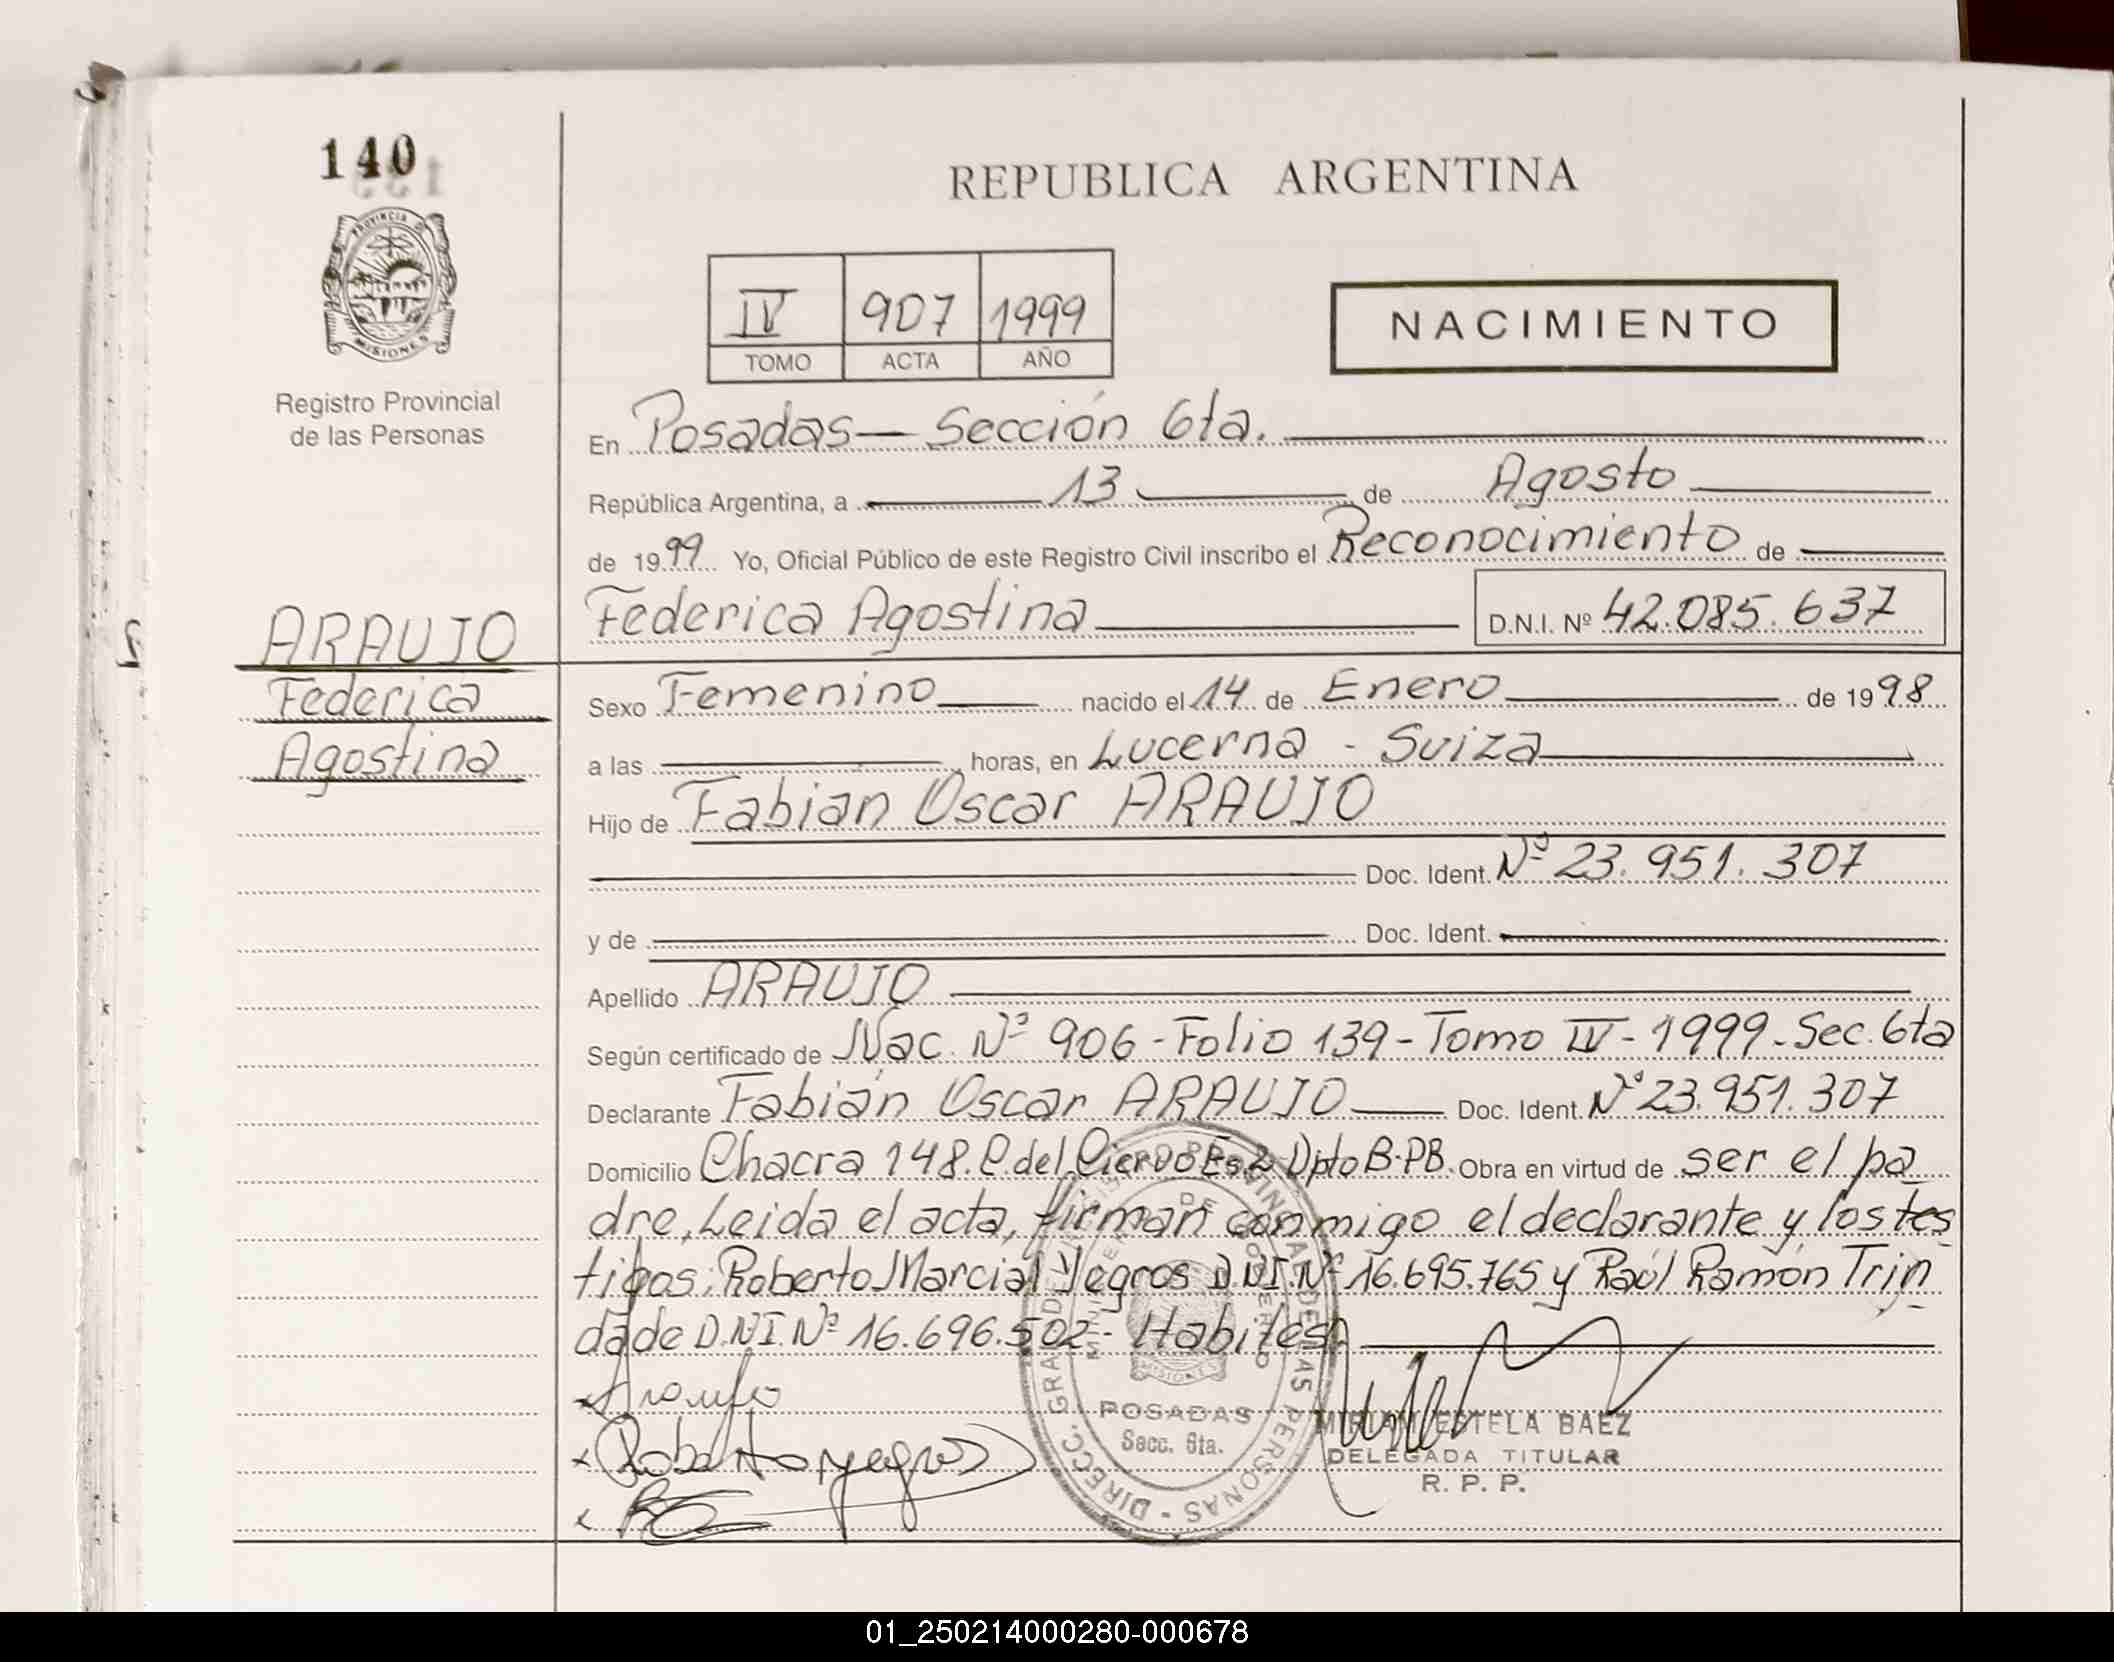 140
PROVINCIA DE
MISIONES
Registro Provincial
de las Personas
REPUBLICA ARGENTINA
IV 907 1999
TOMO ACTA AÑO
NACIMIENTO
En Posadas — Sección 6ta.
República Argentina, a 13 de Agosto
de 1999 Yo, Oficial Público de este Registro Civil inscribo el Reconocimiento de
Federica Agostina D.N.I. Nº 42.085.637
ARAUJO
Federica
Agostina
Sexo Femenino nacido el 14 de Enero de 1998
a las horas, en Lucerna - Suiza
Hijo de Fabian Oscar ARAUJO
Doc. Ident. Nº 23.951.307
y de Doc. Ident.
Apellido ARAUJO
Según certificado de Nac. Nº 906 - Folio 139 - Tomo IV - 1999 - Sec. 6ta
Declarante Fabián Oscar ARAUJO Doc. Ident. Nº 23.951.307
Domicilio Chacra 148. C. del Ciervo Es.2 Dpto B-PB. Obra en virtud de ser el pa
dre, Leida el acta, firman conmigo el declarante y los tes
tigos; Roberto Marcial Yegros D.N.I. Nº 16.695.765 y Raúl Ramón Trin
dade D.N.I. Nº 16.696.502 - Habiles.
x Araujo
x Roberto Yegros
x
DIRECC. GRAL. DE REGISTRO PROVINCIAL DE LAS PERSONAS
MINISTERIO DE GOBIERNO
MISIONES
POSADAS
Secc. 6ta.
MIRIAM ESTELA BAEZ
DELEGADA TITULAR
R. P. P.
01_250214000280-000678